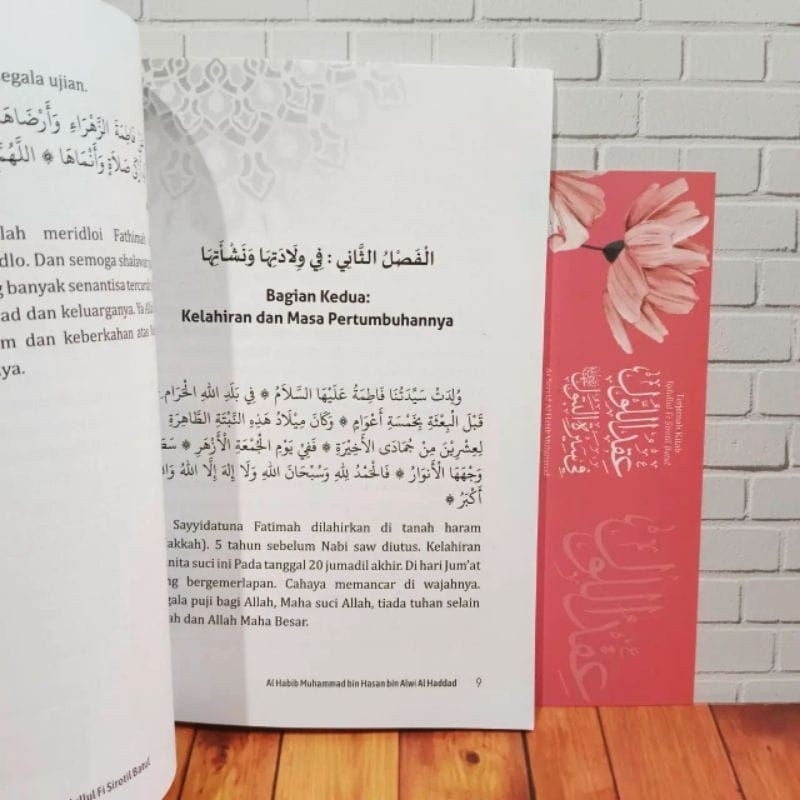 segala ujian.
فَاطِمَةَ الزَّهْرَاءِ وَأَرْضَاهَا
صَلَاةٍ وَأَنْمَاهَا ۞ اللَّهُمَّ
meridloi Fathimah
dlo. Dan semoga shalawat
banyak senantisa tercurah
ad dan keluarganya. Ya
dan keberkahan atas
ya.
Fi Sirotil Batul
الْفَصْلُ الثَّانِي : فِي وِلَادَتِهَا وَنَشْأَتِهَا
Bagian Kedua:
Kelahiran dan Masa Pertumbuhannya
وُلِدَتْ سَيِّدَتُنَا فَاطِمَةُ عَلَيْهَا السَّلَامُ ۞ فِي بَلَدِ اللهِ الْحَرَامِ
قَبْلَ الْبِعْثَةِ بِخَمْسَةِ أَعْوَامٍ ۞ وَكَانَ مِيْلَادُ هَذِهِ النَّبْتَةِ الطَّاهِرَةِ
لِعِشْرِينَ مِنْ جُمَادَى الْأَخِيْرَةِ ۞ فَفِي يَوْمِ الْجُمْعَةِ الْأَزْهَرِ ۞
وَجْهَهَا الْأَنْوَارُ ۞ فَالْحَمْدُ لِلهِ وَسُبْحَانَ اللهِ وَلَا إِلَهَ إِلَّا اللهُ
أَكْبَرُ ۞
Sayyidatuna Fatimah dilahirkan di tanah haram
akkah). 5 tahun sebelum Nabi saw diutus. Kelahiran
nita suci ini Pada tanggal 20 jumadil akhir. Di hari Jum'at
ng bergemerlapan. Cahaya memancar di wajahnya.
gala puji bagi Allah, Maha suci Allah, tiada tuhan selain
ah dan Allah Maha Besar.
Al Habib Muhammad bin Hasan bin Alwi Al Haddad 9
Terjemah Kitab
Iqdullul Fi Sirotil Batul